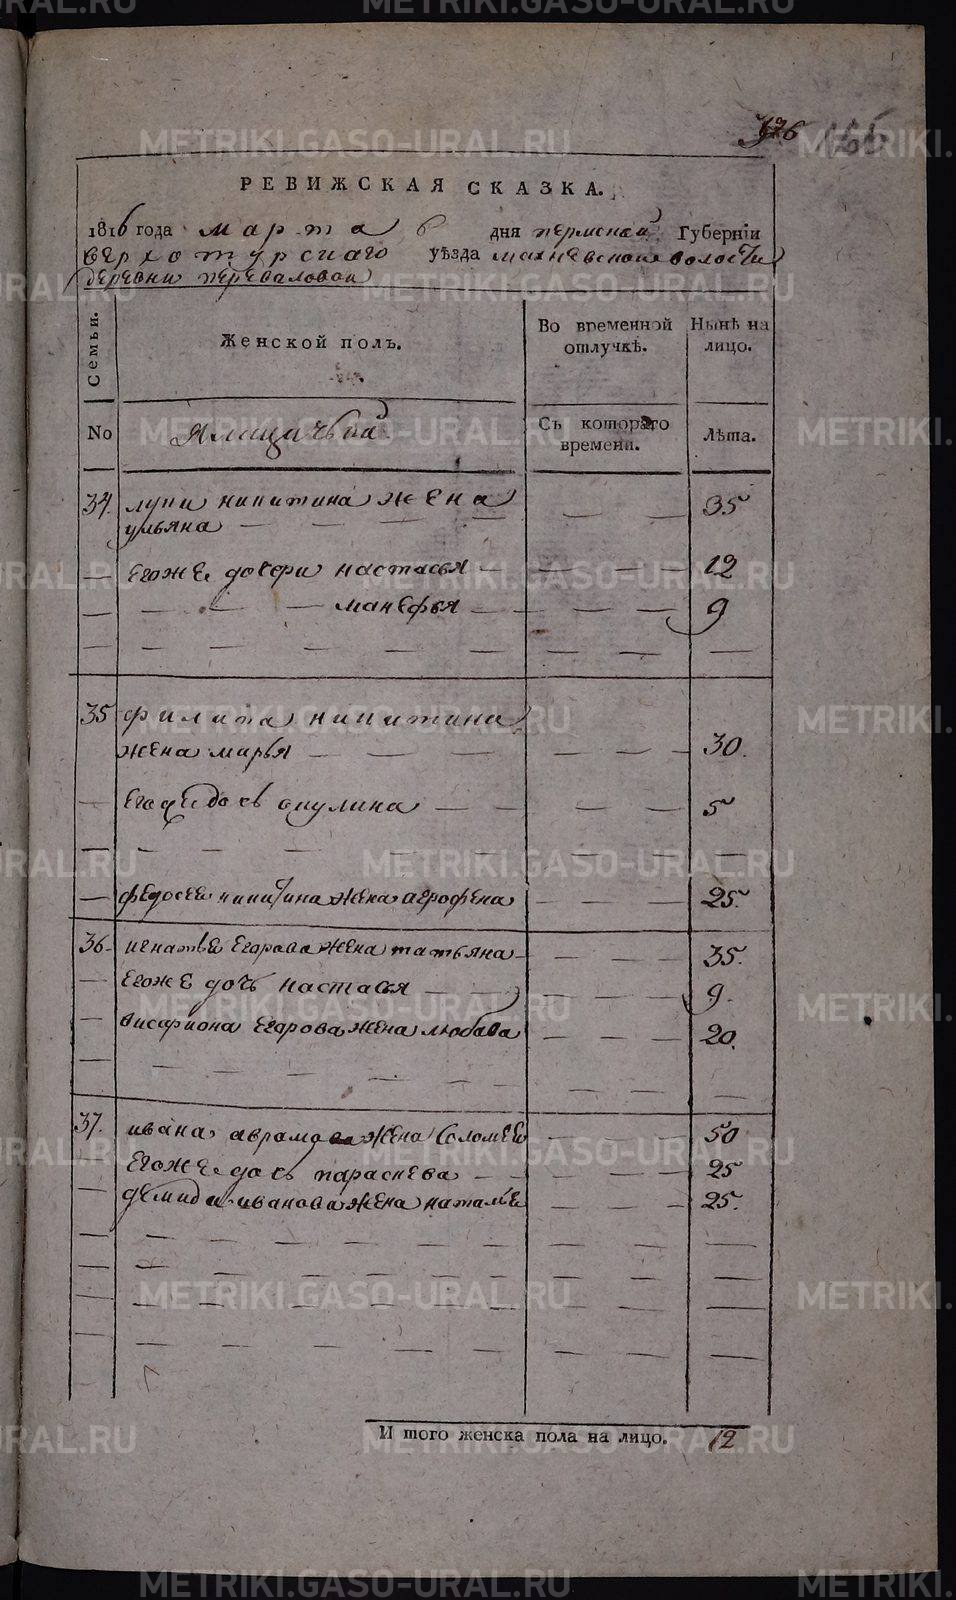 РЕВИЖСКАЯ СКАЗКА.
1816 года марта 6 дня пермской Губернїи
верхотурскаго уѣзда махневской волости
деревни переваловой
Семьи. Женской полъ. Во временной отлучкѣ. Нынѣ на лицо.
No Съ котораго времени. Лѣта.
34. лупи никитина жена
ульяна — — — — — — 35
— егоже дочери настасья — — — — 12
— — — — манефья — — — — 9
35 филипа никитина
жена марья — — — — — — — 30.
— дось окулина — — — — — 5
— федосеи никитина жена агрофена — — — 25.
36. игнатьи егорова жена татьяна — — — — 35.
— егоже дочь настасья — — — — — 9.
— висариона егорова жена любава — — — 20.
37. ивана аврамова жена соломея — — — 50
егоже дось параскева — — — — — 25
— демида иванова жена наталья — — — 25.
И того женска пола на лицо. 12
METRIKI.GASO-URAL.RU